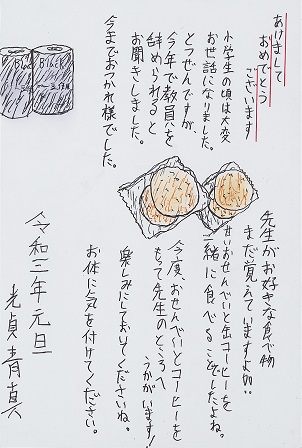 あけまして
おめでとう
ございます
小学生の頃は大変
お世話になりました。
とつぜんですが、
今年で教員を
辞められると
お聞きしました。
今までおつかれ様でした。
Black
Black
先生がお好きな食べ物
まだ覚えていますよ!!
甘いおせんべいと缶コーヒーを
一緒に食べることでしたよね。
今度、おせんべいとコーヒーを
もって先生のところへ
うかがいます!
楽しみにしておいてくださいね。
お体に気を付けてください。
令和三年元旦
光貞青真